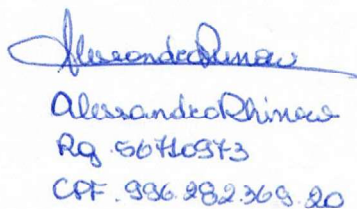 Alessandra Rhinow
Alessandra Rhinow
Rg. 56710973
CPF. 996.282.369.20